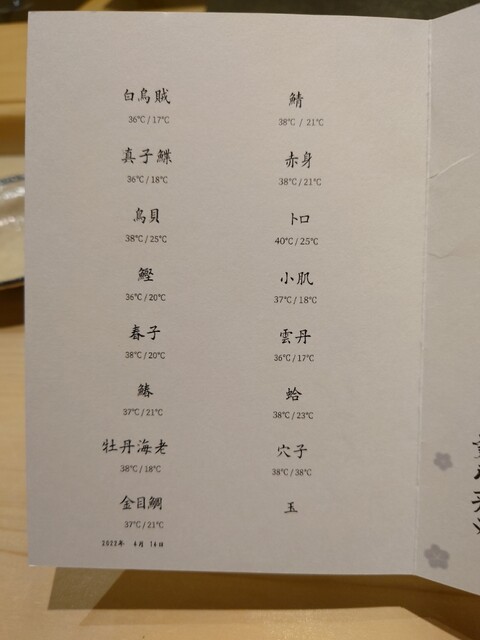 白烏賊
36℃/17℃
真子鰈
36℃/18℃
鳥貝
38℃/25℃
鰹
36℃/20℃
春子
38℃/20℃
鰆
37℃/21℃
牡丹海老
38℃/18℃
金目鯛
37℃/21℃
2022年 4月 16日
鯖
38℃ / 21℃
赤身
38℃/21℃
トロ
40℃/25℃
小肌
37℃/18℃
雲丹
36℃/17℃
蛤
38℃/23℃
穴子
38℃/38℃
玉